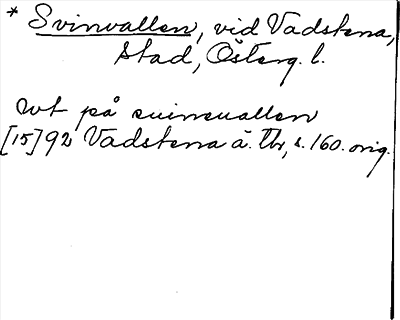 * Svinvallen, vid Vadstena,
stad, Österg. l.
wt på suineuallen
[15]92 Vadstena ä. Tbr, s. 160. orig.